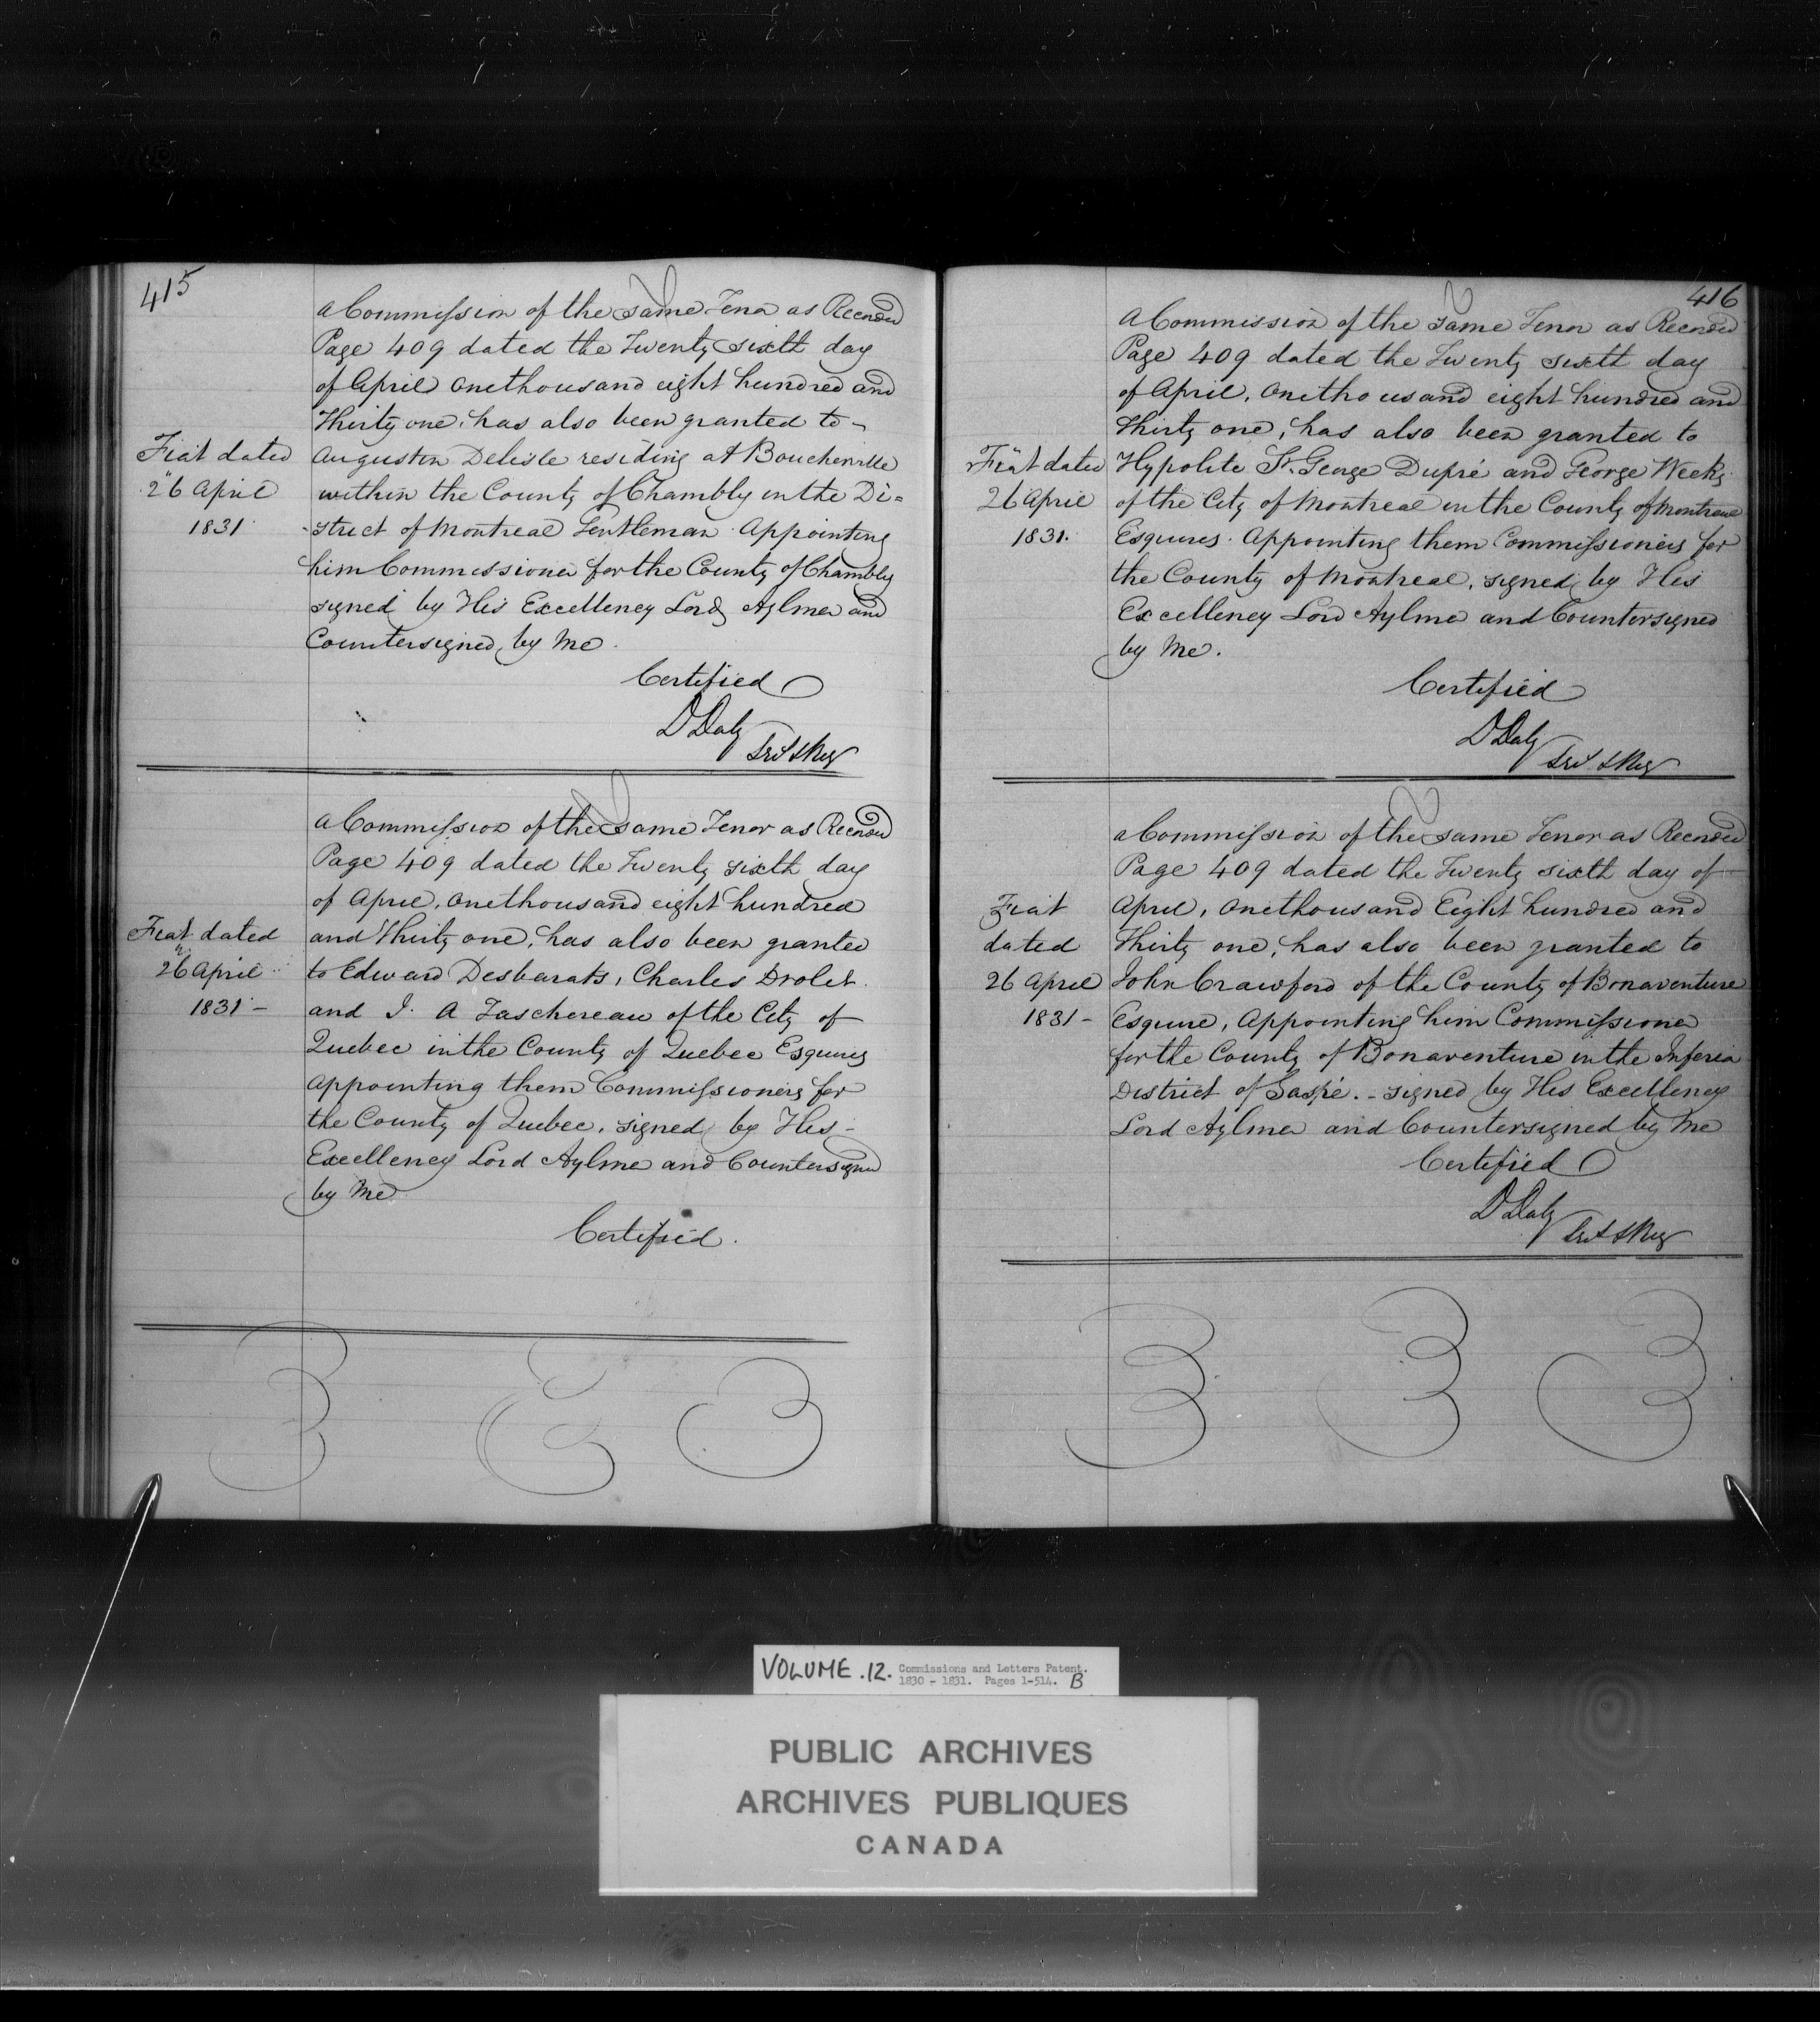 415
a Commission of the same Tenor as Recorded
Page 409 dated the Twenty sixth day
of April one thousand eight hundred and
Thirty one, has also been granted to
Fiat dated
26 April
1831
Augustin Delisle residing at Boucherville
within the County of Chambly in the Di=
strict of Montreal Gentleman. Appointing
him Commissioner for the County of Chambly
signed by His Excellency Lord Aylmer and
Countersigned, by Me.
Certified
D Daly
a Commission of the same Tenor as Recorded
Page 409 dated the Twenty sixth day
of April, one thousand eight hundred
Fiat dated
26 April
1831 -
and Thirty one, has also been granted
to Edward Desbarats, Charles Drolet
and J. A Taschereau of the City of
Quebec in the County of Quebec Esquires
Appointing them Commissioners for
the County of Quebec, signed by His -
Excellency Lord Aylmer and Countersigned
by Me
Certified.
416
a Commission of the same Tenor as Recorded
Page 409 dated the Twenty sixth day
of April, one thousand eight hundred and
Thirty one, has also been granted to
Fiat dated
26 April
1831.
Hypolite St. George Dupré and George Weeks
of the City of Montreal in the County of Montreal
Esquires. Appointing them Commissioners for
the County of Montreal, signed by His
Excellency Lord Aylmer and Countersigned
by Me.
Certified
D Daly
a Commission of the same Tenor as Recorded
Page 409 dated the Twenty sixth day of
Fiat
dated
26 April
1831 -
April, one thousand Eight hundred and
Thirty one, has also been granted to
John Crawford of the County of Bonaventure
Esquire, Appointing him Commissioner
for the County of Bonaventure in the Inferior
District of Gaspé. - signed by His Excellency
Lord Aylmer and Countersigned by Me
Certified
D Daly
VOLUME .12. Commissions and Letters Patent.
1830 - 1831. Pages 1-514. B
PUBLIC ARCHIVES
ARCHIVES PUBLIQUES
CANADA